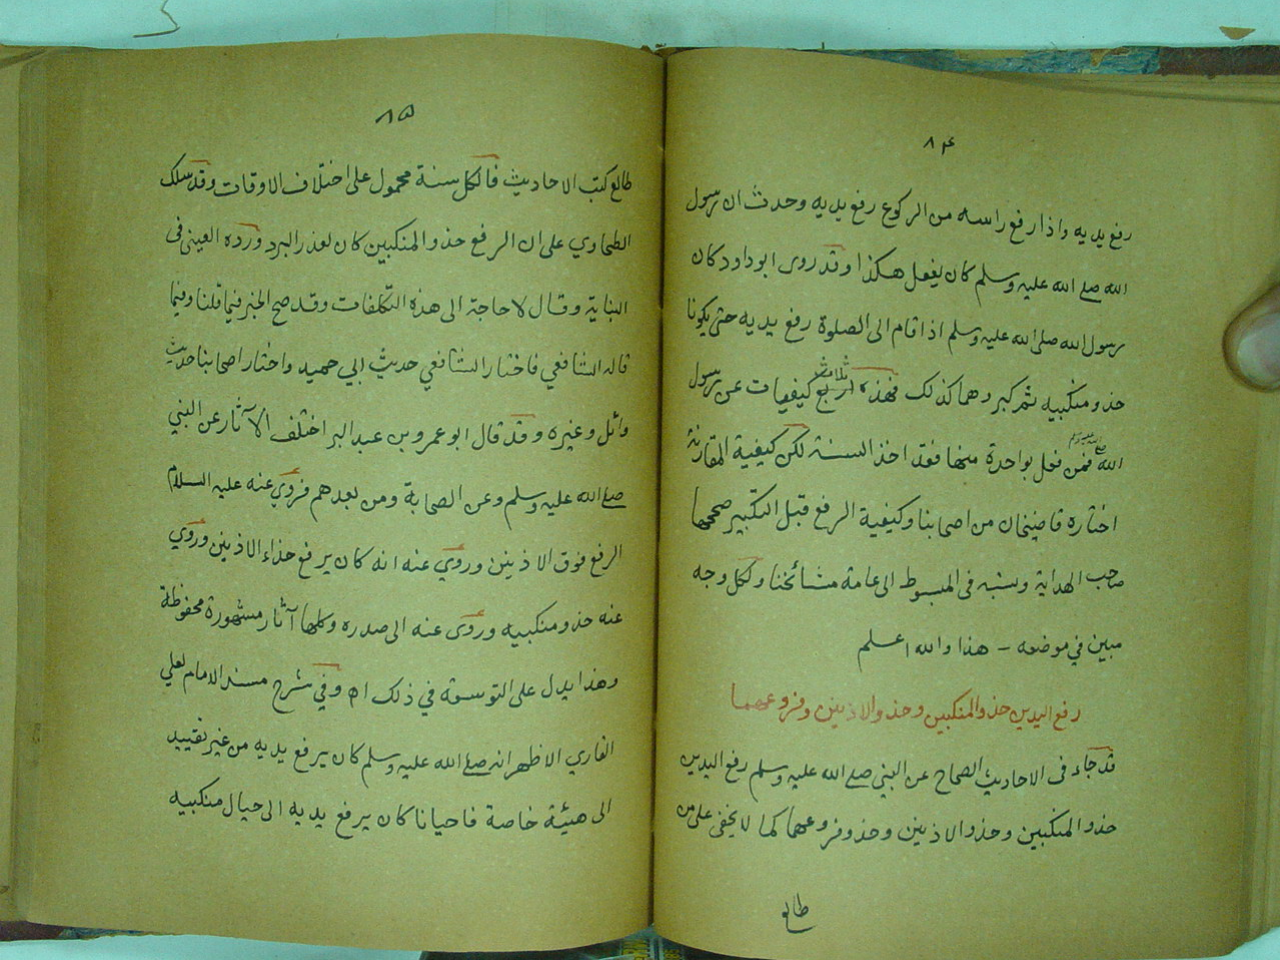 ۸۴
رفع يديه واذا رفع راسه من الركوع رفع يديه وحدث ان رسول
الله صلے الله عليه وسلم كان يفعل هكذا وقد روى ابو داود كان
رسول الله صلى الله عليه وسلم اذا قام الى الصلوة رفع يديه حتى يكونا
حذو منكبيه ثم كبر وهما كذلك فهذه اربع كيفيات عن رسول
ثلاث
الله صلى الله عليه وسلم فمن فعل بواحدة منها فقد اخذ السنة لكن كيفية المقارنة
اختاره قاضيخان من اصحابنا وكيفية الرفع قبل التكبير صححها
صاحب الهداية ونسبه فى المبسوط الى عامة مشائخنا ولكل وجه
مبين في موضعه - هذا والله اعلم
رفع اليدين حذو المنكبين وحذو الاذنين وفروعهما
قد جاء فى الاحاديث الصحاح عن النبي صلے الله عليه وسلم رفع اليدين
حذو المنكبين وحذو الاذنين وحذو فروعهما كما لا يخفى على من
طالع
۸۵
طالع كتب الاحاديث فالكل سنة محمول على اختلاف الاوقات وقد سلك
الطحاوي على ان الرفع حذو المنكبين كان لعذر البرد ورده العينى فى
البناية وقال لا حاجة الى هذه التكلفات وقد صح الخبر فيما قلنا وفيما
قاله الشافعي فاختار الشافعي حديث ابي حميد واختار اصحابنا حديث
وائل وغيره وقد قال ابو عمرو بن عبد البر اختلف الآثار عن النبي
صلے الله عليه وسلم وعن الصحابة ومن بعدهم فروي عنه عليه السلام
الرفع فوق الاذنين وروي عنه انه كان يرفع حذاء الاذنين وروي
عنه حذو منكبيه وروى عنه الى صدره وكلها آثار مشهورة محفوظة
وهذا يدل على التوسعة في ذلك اه وفي شرح مسند الامام لعلي
القاري الاظهر انه صلے الله عليه وسلم كان يرفع يديه من غير تقييد
الى هيئة خاصة فاحيانا كان يرفع يديه الى حيال منكبيه